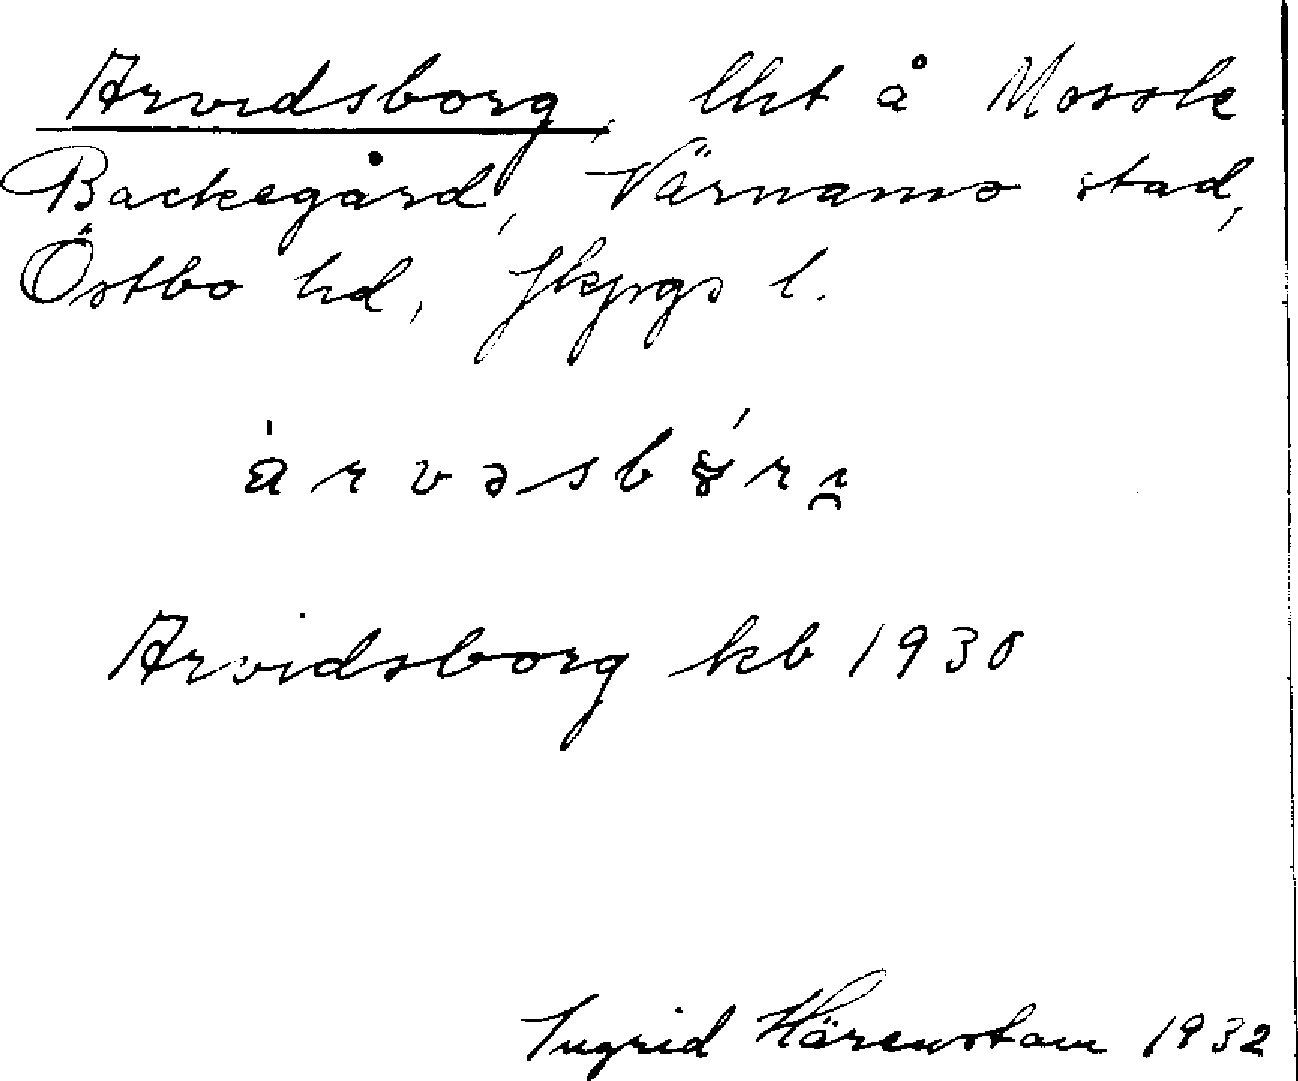 Arvidsborg, lht å Mossle
Backegård, Värnamo stad,
Östbo hd, Jkpgs l.
Arvidsborg kb 1930
Ingrid Härenstam 1932